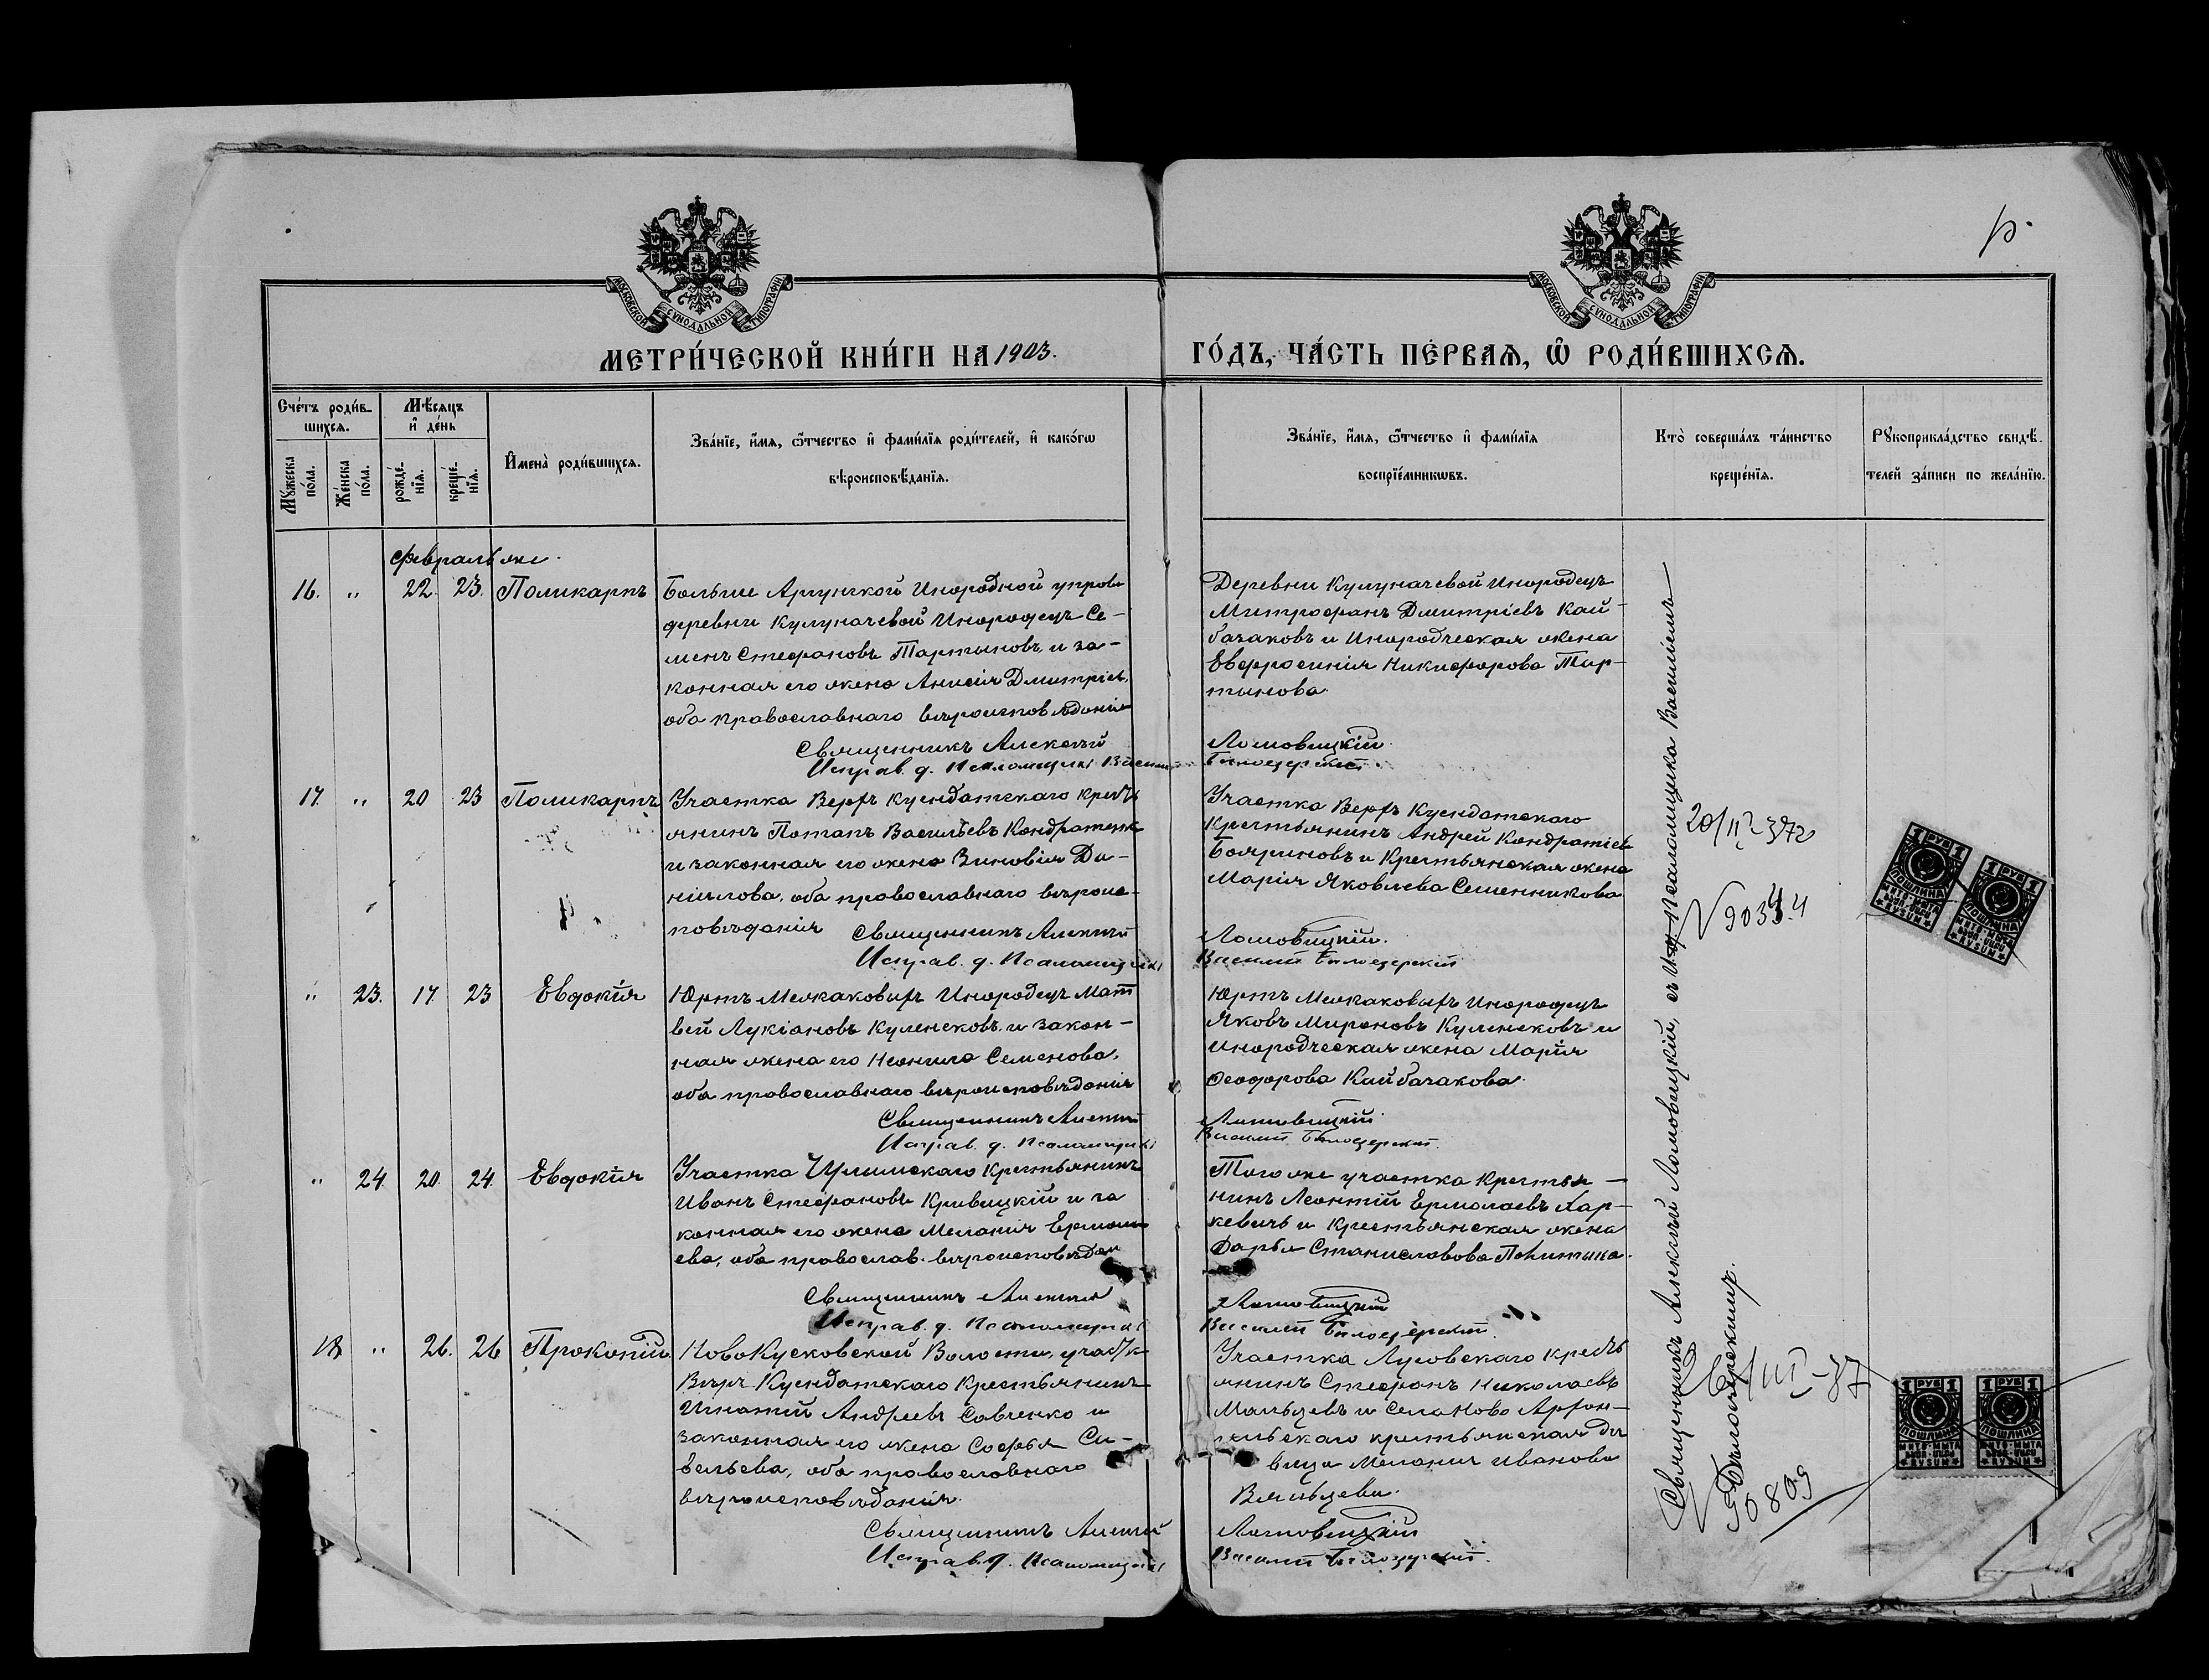 МЕТРИ́ЧЕСКОЙ КНИ́ГИ НА 1903.
ГО́ДЪ, ЧА́СТЬ ПЕ́РВАѦ, Ѡ҆ РОДИ́ВШИХСѦ.
МОСКОВСКОЙ СѴНОДАЛЬНОЙ ТИПОГРАФІИ
МОСКОВСКОЙ СѴНОДАЛЬНОЙ ТИПОГРАФІИ
Сче́тъ роди́в-
шихсѧ.
Мꙋ́жеска по́ла.
Же́нска по́ла.
Мѣ́сѧцъ
и҆ де́нь
рожде́-нїѧ.
креще́-нїѧ.
И҆мена̀ роди́вшихсѧ.
Зва́нїе, и҆́мѧ, ѻ҆́тчество и҆ фами́лїѧ роди́телей, и҆ како́гѡ
вѣроисповѣ́данїѧ.
Зва́нїе, и҆́мѧ, ѻ҆́тчество и҆ фами́лїѧ
воспрїе́мникѡвъ.
Кто̀ соверша́лъ та́инство
креще́нїѧ.
Рꙋкоприкла́дство свидѣ́-
телей за́писи по жела́нїю.
Февраль же.
16. " 22. 23. Поликарпъ
Больше Аргунской Инородной управы
деревни Кулуначевой Инородецъ Се-
менъ Стефановъ Тартыновъ, и за-
конная его жена Анисія Дмитріев.
оба православнаго вѣроисповѣданія
Священникъ Алексѣй
Исправ. д. Псаломщика Василій
Деревни Кулуначевой Инородецъ
Митрофанъ Дмитріевъ Кай-
бачаковъ и Инородческая жена
Евфросинія Никифорова Тар-
тынова.
Ломовицкій.
Бѣлозерскій.
17. " 20 23 Поликарпъ
Участка Верхъ Куендатскаго кресть
янинъ Потапъ Васильевъ Кондратенк
и законная его жена Зиновія Да-
ніилова, оба православнаго вѣроис-
повѣданія Священникъ Алексѣй
Исправ. д. Псаломщика
Участка Верхъ Куендатскаго
Крестьянинъ Андрей Кондратіев
Бояриновъ и Крестьянская жена
Марія Яковлева Семенникова
Ломовицкій.
Василій Бѣлозерскій
" 23. 17. 23 Евдокія
Юртъ Межаковыхъ Инородецъ Мат
вей Лукіановъ Куленековъ, и закон-
ная жена его Неонила Семенова,
оба православнаго вѣроисповѣданія
Священникъ Алексѣй
Исправ. д. Псаломщика
Юртъ Межаковыхъ Инородецъ
Яковъ Мироновъ Куленековъ и
Инородческая жена Марія
Феодорова Кайбачакова.
Ломовицкій.
Василій Бѣлозерскій.
" 24. 20. 24. Евдокія
Участка Крестьянинъ
Иванъ Стефановъ Кривицкій и за
конная его жена Меланія Ермола
ева, оба православ. вѣроисповѣдан
Священникъ Алексѣй
Исправ. д. Псаломщика
Того же участка Крестья-
нинъ Леонтій Ермолаевъ Хар-
кевичъ и Крестьянская жена
Дарья Станиславова
Ломовицкій
Василій Бѣлозерскій.
18 " 26. 26 Прокопій
НовоКусковской Волости, участ/к
Верхъ-Куендатскаго Крестьянинъ
Игнатій Андреевъ Савченко и
законная его жена Софья Са-
вельева, оба православнаго
вѣроисповѣданія.
Священникъ Алексѣй
Исправ. д. Псаломщика
Участка Лусовскаго кресть
янинъ Стефанъ Николаевъ
Мальцевъ и Села Ново Архан-
гельскаго крестьянская дѣ
вица Меланія Иванова
Вяльцева.
Ломовицкій
Василій Бѣлозерскій.
Священникъ Алексѣй Ломовицкій, съ И.д. Псаломщика Василіемъ
Бѣлозерскимъ.
20/II-37г
26/III-37
50809
1 РУБ 1
ПОШЛИНА
1 РУБ 1
ПОШЛИНА
1 РУБ 1
ПОШЛИНА
1 РУБ 1
ПОШЛИНА